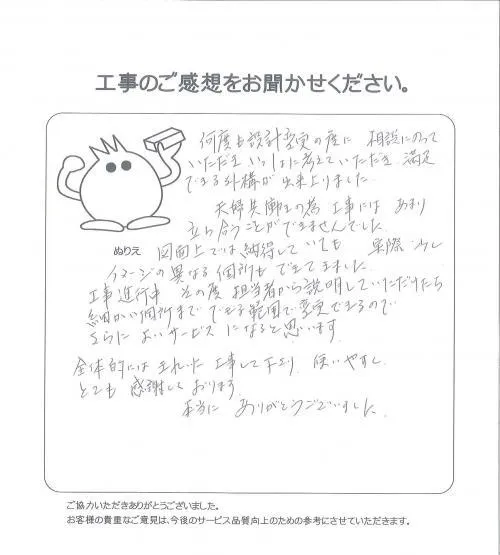 工事のご感想をお聞かせください。
何度も設計変更の度に 相談にのって
いただき いっしょに考えていただき 満足
できる外構が 出来上りました。
夫婦共働きの為 工事には あまり
立ち合うことができませんでした。
ぬりえ
図面上では納得していても 実際 少し
イメージの異なる個所も でてきました。
工事進行中 その度 担当者から説明していただけたら
細かい個所まで できる範囲で変更できるので
さらに よいサービス になると思います。
全体的には きれいな 工事して下さり 使いやすく
とても 感謝しております。
本当に ありがとうございました。
ご協力いただきありがとうございました。
お客様の貴重なご意見は、今後のサービス品質向上のための参考にさせていただきます。